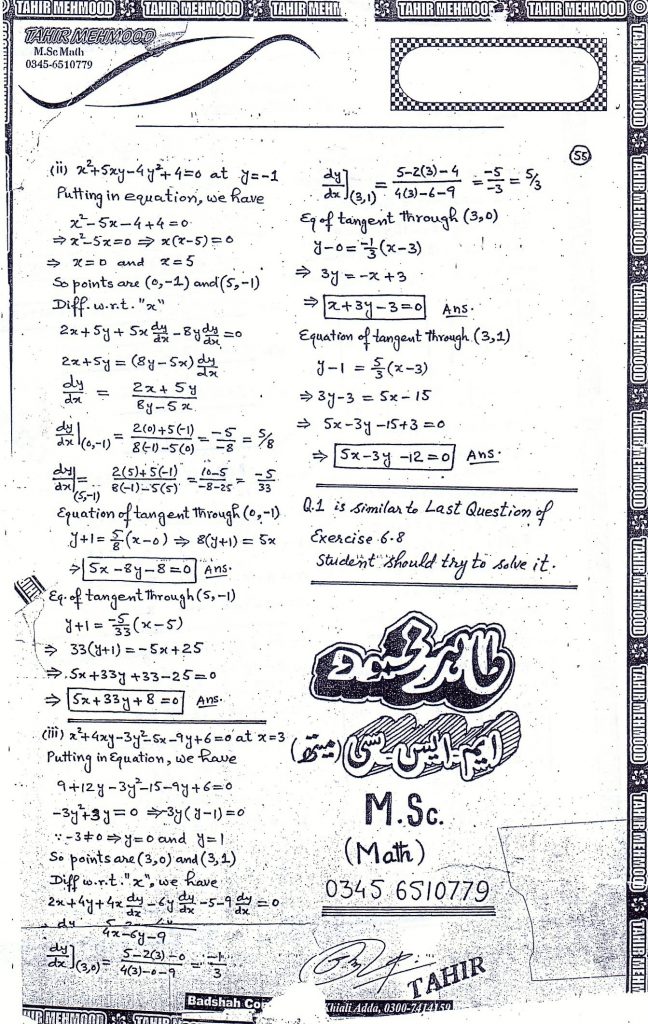 TAHIR MEHMOOD TAHIR MEHMOOD TAHIR MEHM TAHIR MEHMOOD TAHIR MEHMOOD
TAHIR MEHMOOD
M.Sc Math
0345-6510779
55
(ii) x²+5xy-4y²+4=0 at y=-1
Putting in equation, we have
x²-5x-4+4=0
⇒ x²-5x=0 ⇒ x(x-5)=0
⇒ x=0 and x=5
So points are (0,-1) and (5,-1)
Diff. w.r.t. "x"
2x+5y+5x dy/dx -8y dy/dx =0
2x+5y = (8y-5x) dy/dx
dy/dx = (2x+5y)/(8y-5x)
dy/dx|(0,-1) = (2(0)+5(-1))/(8(-1)-5(0)) = -5/-8 = 5/8
dy/dx|(5,-1) = (2(5)+5(-1))/(8(-1)-5(5)) = (10-5)/(-8-25) = -5/33
Equation of tangent through (0,-1)
y+1 = 5/8 (x-0) ⇒ 8(y+1) = 5x
⇒ 5x-8y-8=0 Ans.
Eq. of tangent through (5,-1)
y+1 = -5/33 (x-5)
⇒ 33(y+1) = -5x+25
⇒ 5x+33y+33-25=0
⇒ 5x+33y+8=0 Ans.
(iii) x²+4xy-3y²-5x-9y+6=0 at x=3
Putting in Equation, we have
9+12y-3y²-15-9y+6=0
-3y²+3y=0 ⇒ -3y(y-1)=0
∵ -3≠0 ⇒ y=0 and y=1
So points are (3,0) and (3,1)
Diff w.r.t. "x", we have
2x+4y+4x dy/dx -6y dy/dx -5-9 dy/dx =0
4x-6y-9
dy/dx](3,0) = (5-2(3)-0)/(4(3)-0-9) = -1/3
dy/dx](3,1) = (5-2(3)-4)/(4(3)-6-9) = -5/-3 = 5/3
Eq of tangent through (3,0)
y-0 = -1/3 (x-3)
⇒ 3y = -x+3
⇒ x+3y-3=0 Ans.
Equation of tangent through (3,1)
y-1 = 5/3 (x-3)
⇒ 3y-3 = 5x-15
⇒ 5x-3y-15+3=0
⇒ 5x-3y-12=0 Ans.
Q.1 is similar to Last Question of
Exercise 6.8
Student should try to solve it.
طاہر محمود
ایم ۔ ایس ۔ سی (میتھ)
M.Sc.
(Math)
0345 6510779
TAHIR
Badshah Co
Khiali Adda, 0300-7414159
TAHIR MEHMOOD
TAHIR MEHMOOD
TAHIR MEHMOOD
TAHIR MEHMOOD
TAHIR MEHMOOD
TAHIR MEHMOOD
TAHIR MEHMOOD